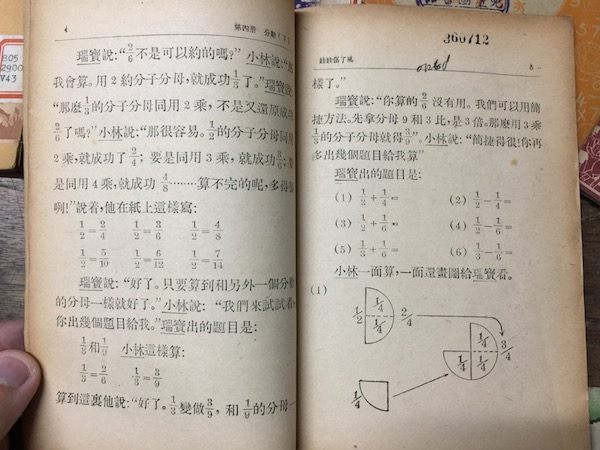 4
第四册 分數(下)
瑞寶說:“2/6不是可以約的嗎?”小林說:“
我會算。用2約分子分母,就成功1/3了。”瑞寶說
“那麽1/3的分子分母同用2乘,不是又還原成功
2/6了嗎?”小林說:“那很容易。1/2的分子分母同用
2乘,就成功了2/4,要是同用3乘,就成功3/6,要
是同用4乘,就成功4/8………算不完的呢,多得很
咧!”說着,他在紙上這樣寫:
1/2=2/4 1/2=3/6 1/2=4/8
1/2=5/10 1/2=6/12 1/2=7/14
瑞寶說:“好了。只要算到和另外一個分數
的分母一樣就好了。”小林說:“我們來試試看,
你出幾個題目給我。”瑞寶出的題目是:
1/3和1/9 小林這樣算:
1/3=2/6 1/3=3/9
算到這裏他說:“好了。1/3變做3/9,和1/9的分母一
360712
娃娃傷了風
5
樣了。”
瑞寶說:“你算的2/6沒有用。我們可以用簡
捷方法。先拿分母9和3比,是3倍。那麽用3乘
1/3的分子分母就得3/9”。小林說:“簡捷得很!你再
多出幾個題目給我算”
瑞寶出的題目是:
(1) 1/2+1/4= (2) 1/2-1/4=
(3) 1/2+1/6= (4) 1/2-1/6=
(5) 1/3+1/6= (6) 1/3-1/6=
小林一面算,一面還畫圖給瑞寶看。
(1)
1/2 1/4 1/4 2/4
1/4 1/4 1/4 3/4
1/4
B05
2900
V43